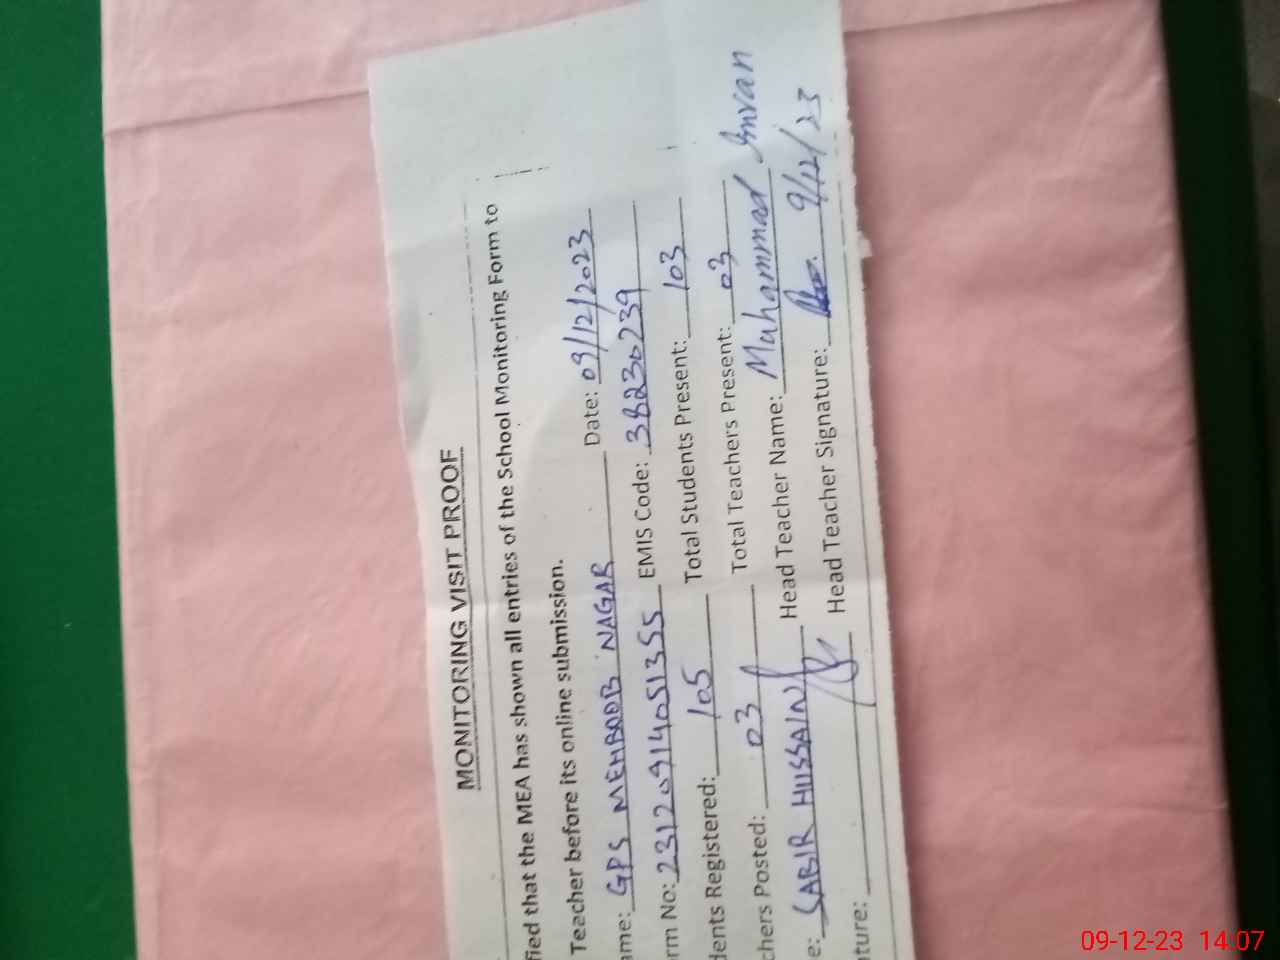 MONITORING VISIT PROOF
fied that the MEA has shown all entries of the School Monitoring Form to
Teacher before its online submission.
ame: GPS MEHBOOB NAGAR Date: 09/12/2023
rm No: 23120914051355 EMIS Code: 38230239
dents Registered: 105 Total Students Present: 103
chers Posted: 03 Total Teachers Present: 03
e: SABIR HUSSAIN Head Teacher Name: Muhammad Imran
ture: Head Teacher Signature: 9/12/23
09-12-23 14:07